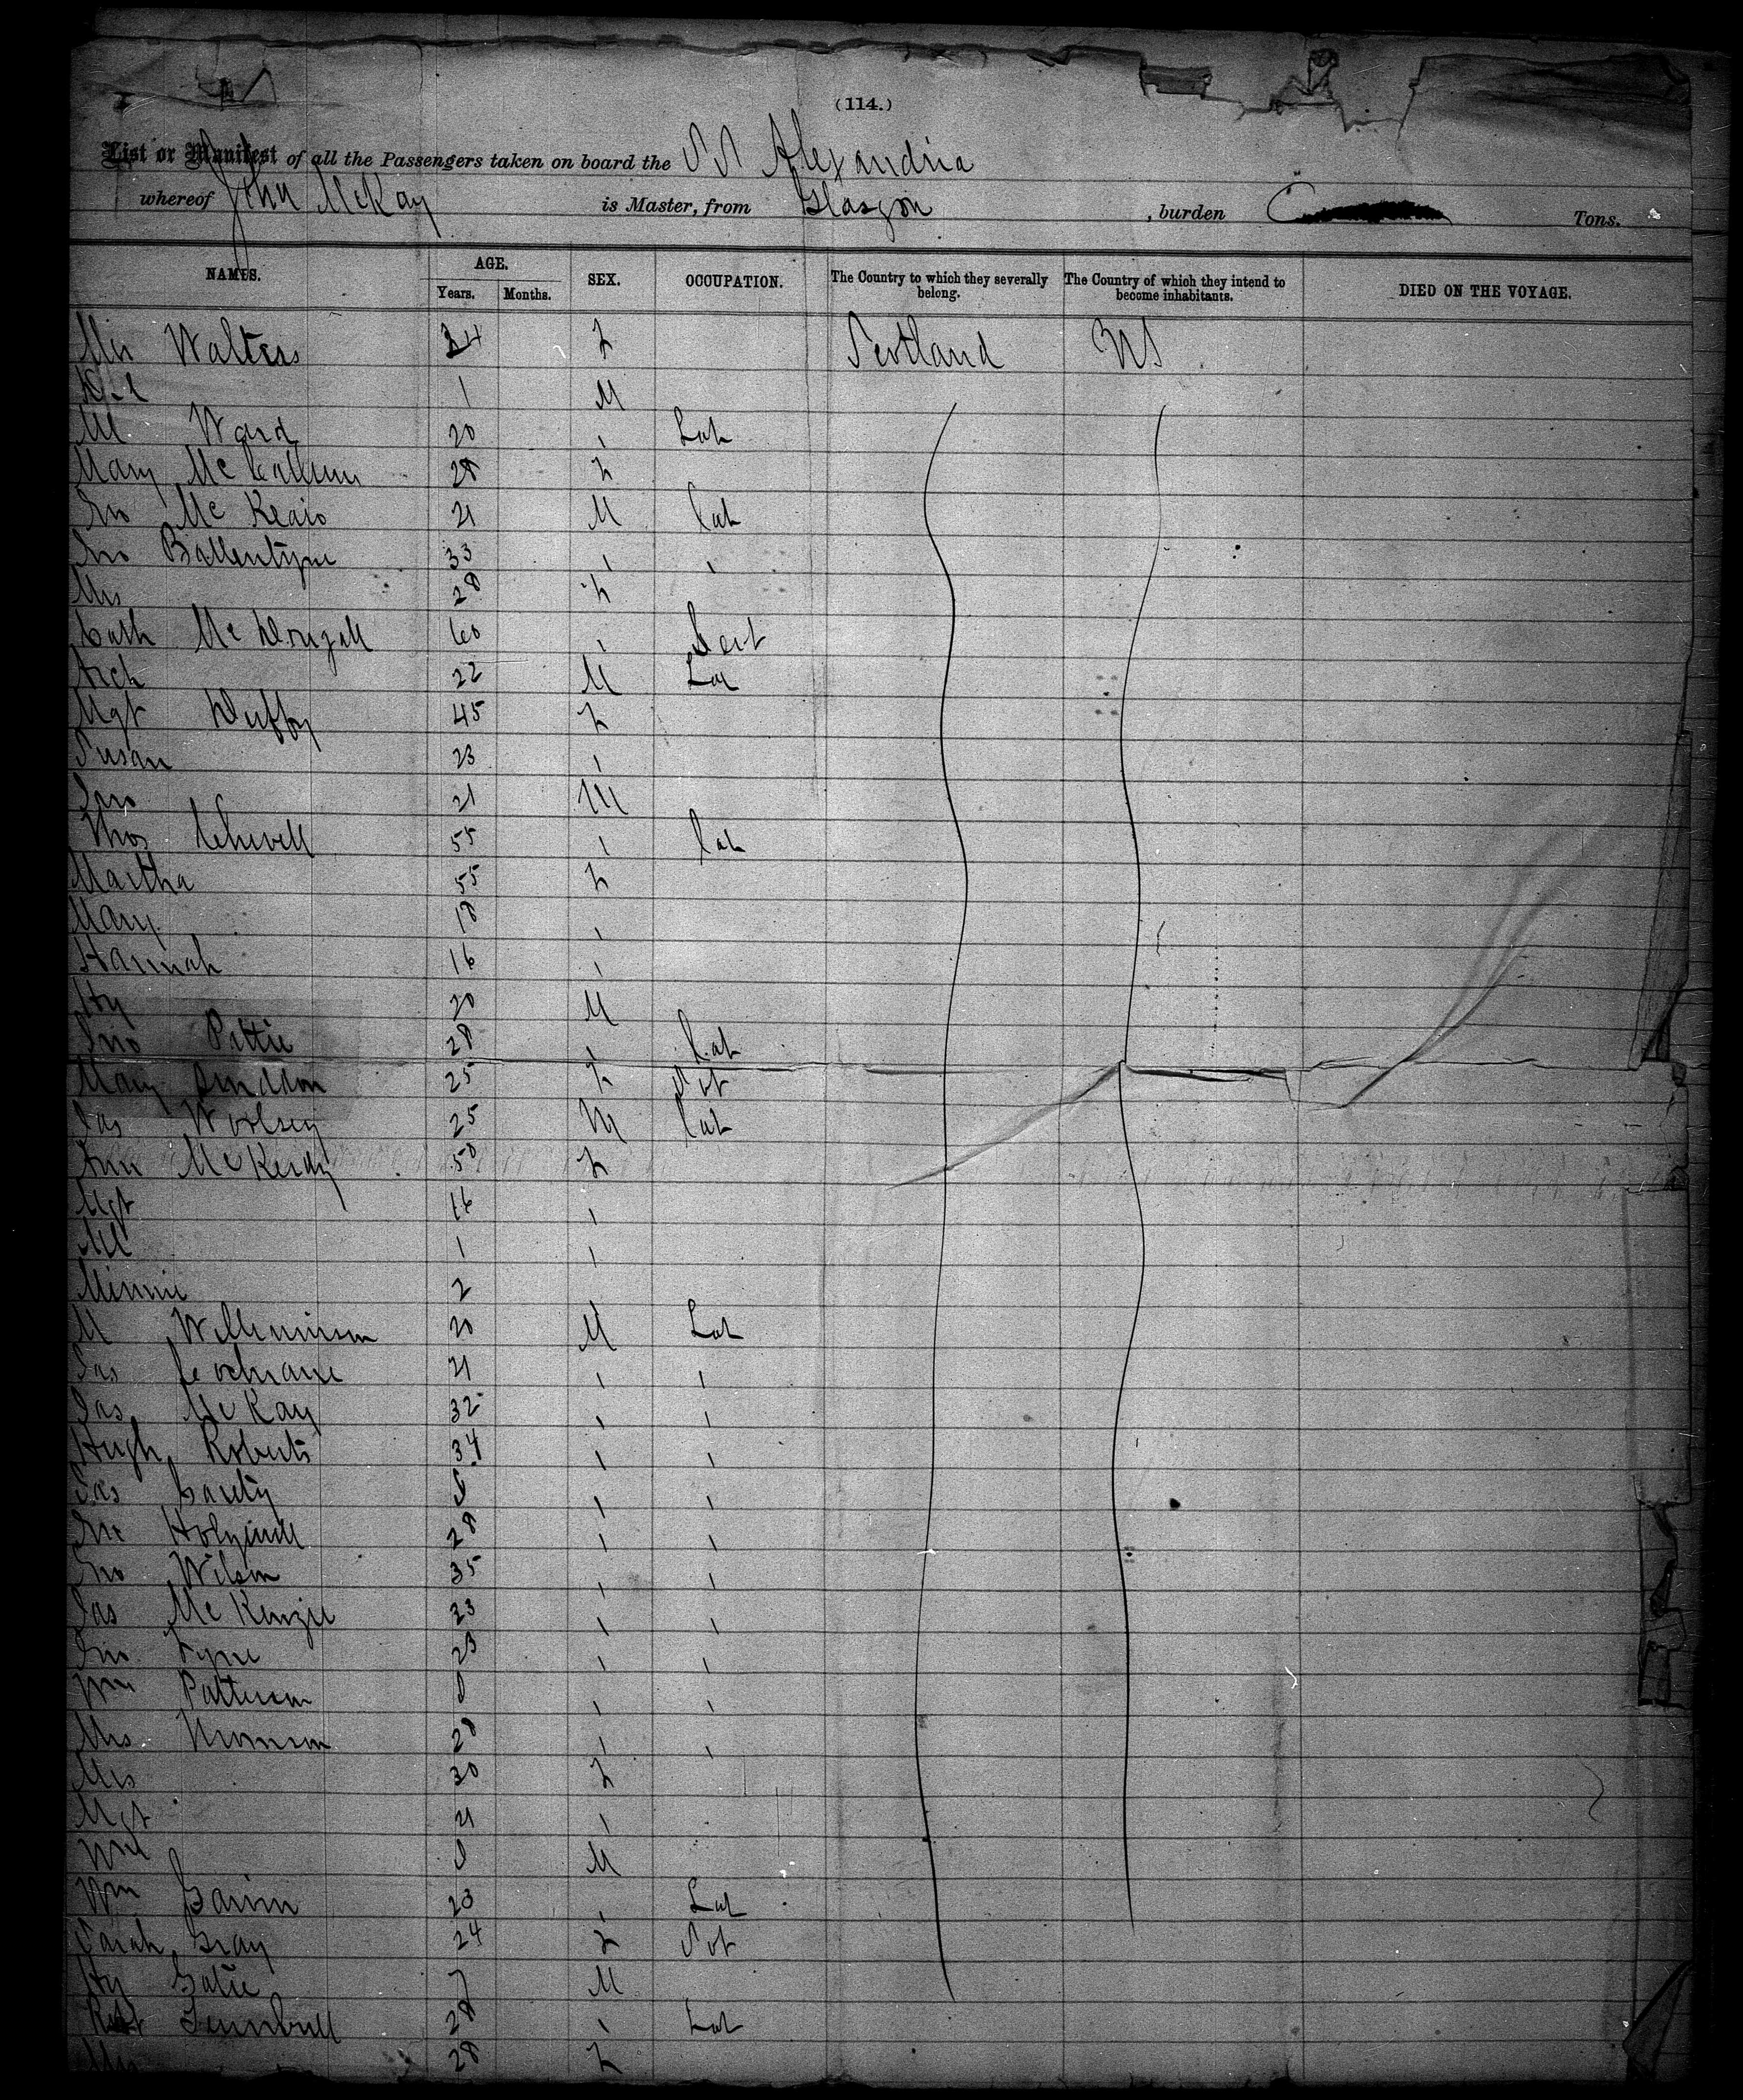 (114.)
List or Manifest of all the Passengers taken on board the SS Alexandria
whereof John McKay is Master, from Glasgow , burden Tons.
NAMES. AGE. SEX. OCCUPATION. The Country to which they severally belong. The Country of which they intend to become inhabitants. DIED ON THE VOYAGE.
Years. Months.
Walters 34 F Scotland US
1 M
M Ward 20 " Lab
Mary McCallum 28 F
Jno Mc 21 M Lab
Jno Ballentyne 33 " "
Mrs 28 F
Cath McDougall 60 " Servt
Arch 22 M Lab
Mgt Duffy 45 F
Susan 23 "
Jno 21 M
Thos 55 " Lab
Martha 55 F
Mary 18 "
Hannah 16 "
Hy 20 M
Jno Pettie 28 " Lab
Mary 25 F Svt
Jas Woolsey 25 M Lab
Ann McKerdy 50 F
Mgt 16 "
1 "
Minnie 2
M 20 M Lab
Jas Cochrane 21 " "
Jas McKay 32 " "
Hugh Roberts 34 " "
Jas 8 " "
28 " "
Jno Wilson 35 " "
Jas McKenzie 23 " "
Jno 23 " "
Wm Patterson 8 " "
28 " "
Mrs 30 F
Mgt 21 "
Wm 8 M
Wm 23 " Lab
Sarah Gray 24 F Svt
Hy 7 M
Robt Turnbull 28 " Lab
Mrs 28 F